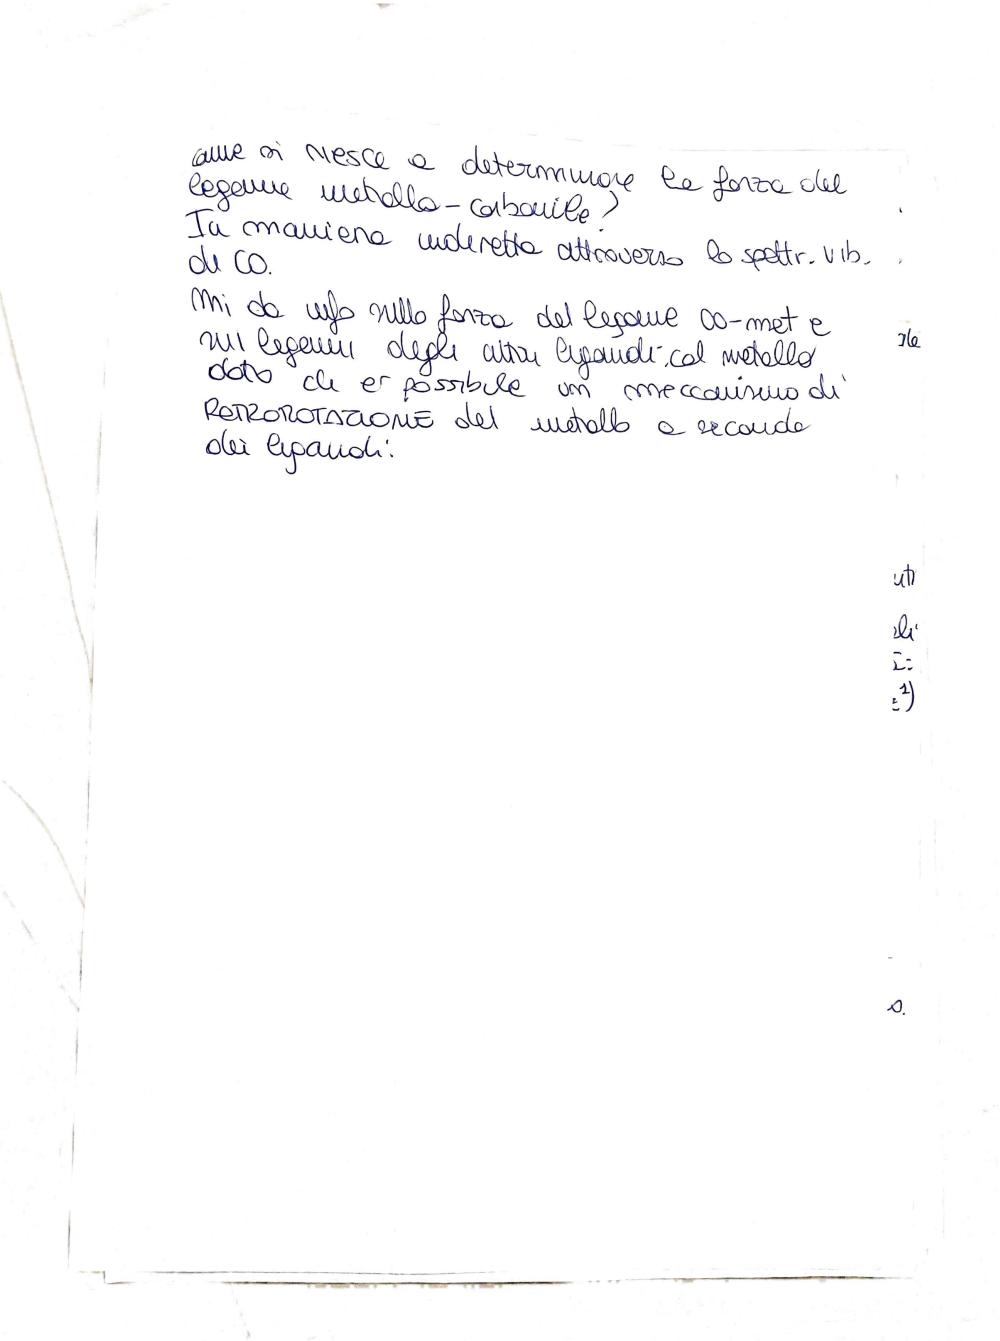 come si riesce a determinare la forza del
legame metallo-carbonile?
In maniera indiretta attraverso lo spettr. vib.
di CO.
Mi da info sulla forza del legame CO-met e
sui legami degli altri ligandi col metallo
dato che e' possibile un meccanismo di
RETRODOTAZIONE del metallo a seconda
dei ligandi: